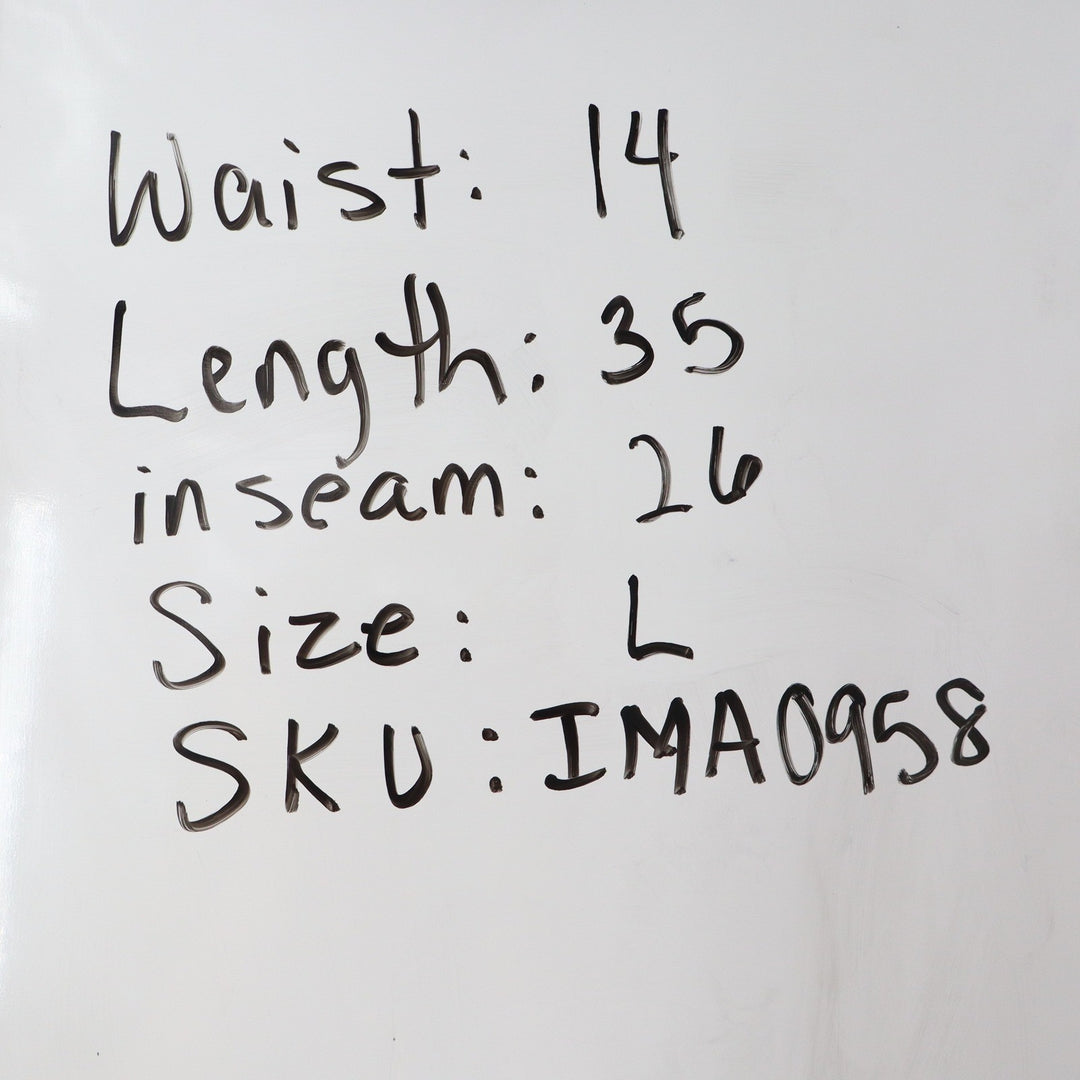 Waist: 14
Length: 35
inseam: 26
Size: L
SKU: IMA0958